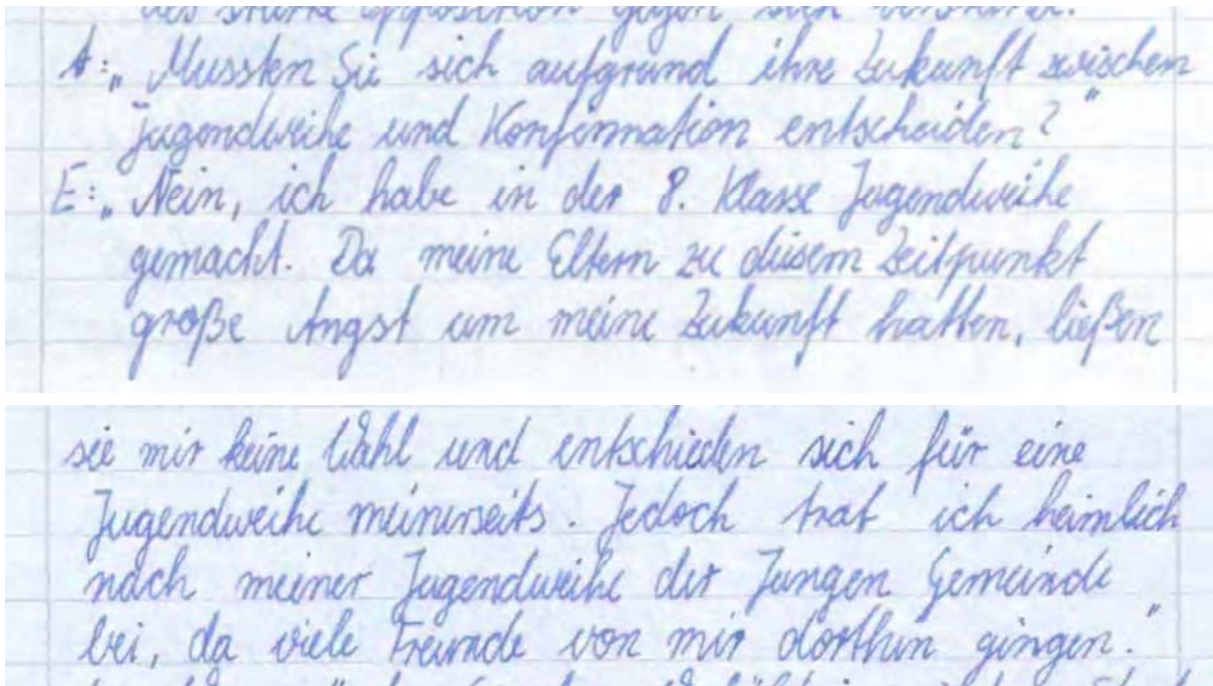 des starke Opposition gegen sich
A: „Mussten Sie sich aufgrund ihre Zukunft zwischen
Jugendweihe und Konfirmation entscheiden?"
E: „Nein, ich habe in der 8. Klasse Jugendweihe
gemacht. Da meine Eltern zu diesem Zeitpunkt
große Angst um meine Zukunft hatten, ließen
sie mir keine Wahl und entschieden sich für eine
Jugendweihe meinerseits. Jedoch trat ich heimlich
nach meiner Jugendweihe der Jungen Gemeinde
bei, da viele Freunde von mir dorthin gingen."